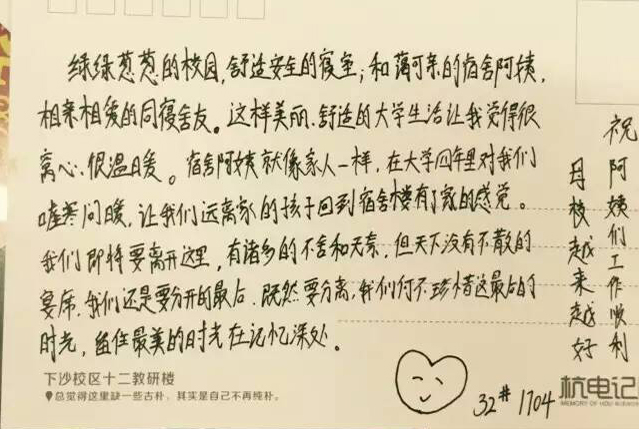 绿绿葱葱的校园,舒适安全的寝室;和蔼可亲的宿舍阿姨,
相亲相爱的同寝舍友。这样美丽、舒适的大学生活让我觉得很
窝心、很温暖。宿舍阿姨就像家人一样,在大学四年里对我们
嘘寒问暖,让我们远离家的孩子回到宿舍楼有了家的感觉。
我们即将要离开这里,有诸多的不舍和无奈,但天下没有不散的
宴席,我们还是要分开的最后。既然要分离,我们何不珍惜这最后的
时光,留住最美的时光在记忆深处。
祝阿姨们工作顺利
母校越来越好
32# 1704
下沙校区十二教研楼
总觉得这里缺一些古朴,其实是自己不再纯朴。
杭电记